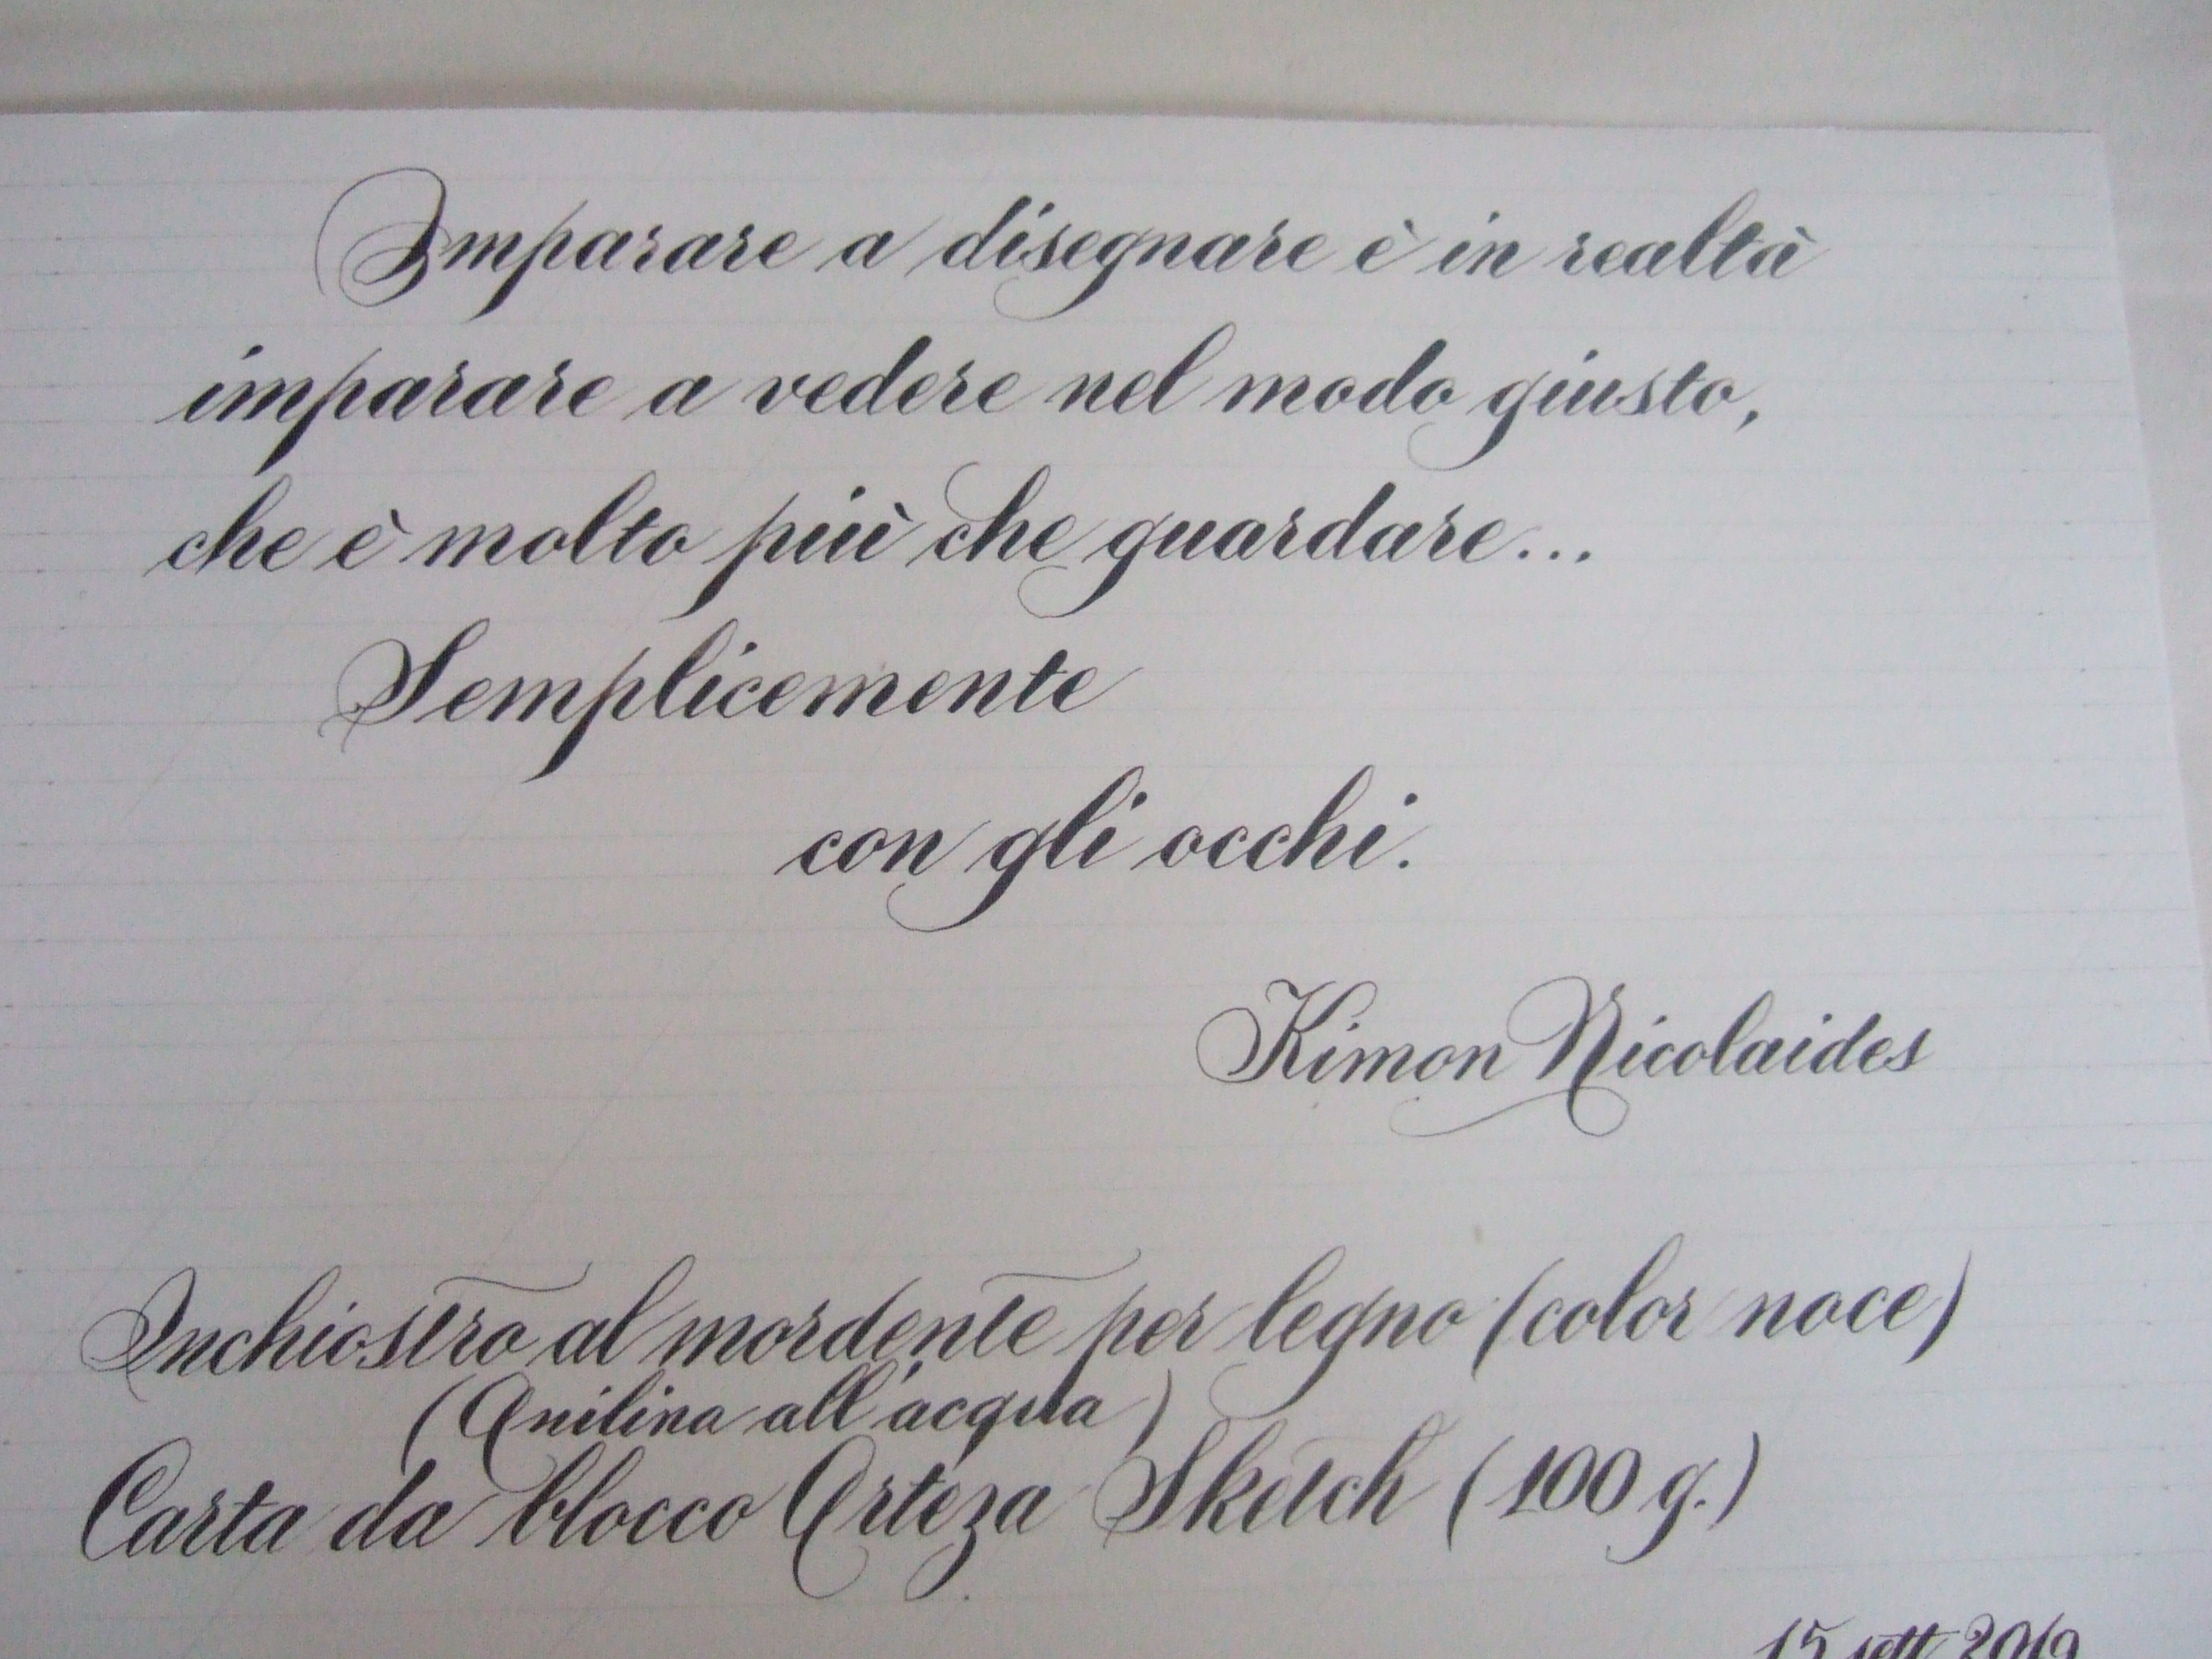 Imparare a disegnare è in realtà
imparare a vedere nel modo giusto,
che è molto più che guardare...
Semplicemente
con gli occhi.
Kimon Nicolaides
Inchiostro al mordente per legno (color noce)
(Anilina all'acqua)
Carta da blocco Arteza Sketch (100 g.)
15 sett 2019